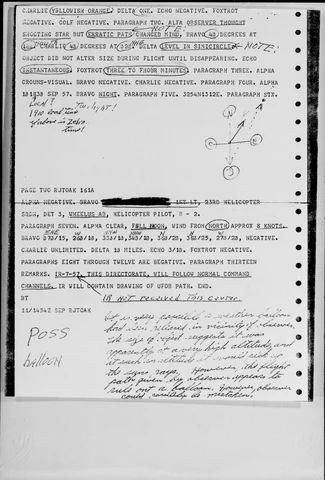 CHARLIE YELLOVISH ORANGE. DELTA ONE. ECHO NEGATIVE. FOXTROT
NEGATIVE. GOLF NEGATIVE. PARAGRAPH TWO. ALFA OBSERVER THOUGHT
NOTE
SHOOTING STAR BUT ERRATIC PATS CHANGED MIND. BRAVO 40 DEGREES
CHARLIE 40 DEGREES AT DELTA LEVEL IN SIMICIRCLE NOTE:
OBJECT DID NOT ALTER SIZE DURING FLIGHT UNTIL DISAPPEARING. ECHO
INSTANTANEOUS. FOXTROT THREE TO FHOUR MINUTES. PARAGRAPH THREE. ALPHA
GROUNS-VISUAL. BRAVO NEGATIVE. CHARLIE NEGATIVE. PARAGRAPH FOUR. ALPHA
SEP 57. BRAVO NIGHT. PARAGRAPH FIVE. 3254N1312E. PARAGRAPH SIX.
Local?
N
PAGE TWO RJTOAK 161A
ALPHA NEGATIVE. BRAVO 1ST LT, 23RD HELICOPTER
DET 3, WHEELUS AB, HELICOPTER PILOT, B - 2.
PARAGRAPH SEVEN. ALPHA CLEAR, FULL MOON, WIND FROM NORTH APPROX 8 KNOTS.
BRAVO
CHARLIE UNLIMITED. DELTA 15 MILES. ECHO 3/10. FOXTROT NEGATIVE.
PARAGRAPHS EIGHT THROUGH TWELVE ARE NEGATIVE. PARAGRAPH THIRTEEN
REMARKS. IR-7-57, THIS DIRECTORATE, WILL FOLLOW NORMAL COMMAND
CHANNELS. IR WILL CONTAIN DRAWING OF UFOB PATH. END.
BT IR not received this center.
11/1454Z SEP RJTOAK
POSS
balloon
It is very possible a weather balloon
had been released in vicinity of observer.
The size of object suggests it was
apparently at a very high altitude, and
at such an altitude it would pick up
the suns rays. However, the flight
path given by observer appears to
rule out a balloon. However, observer
could possibly be mistaken.